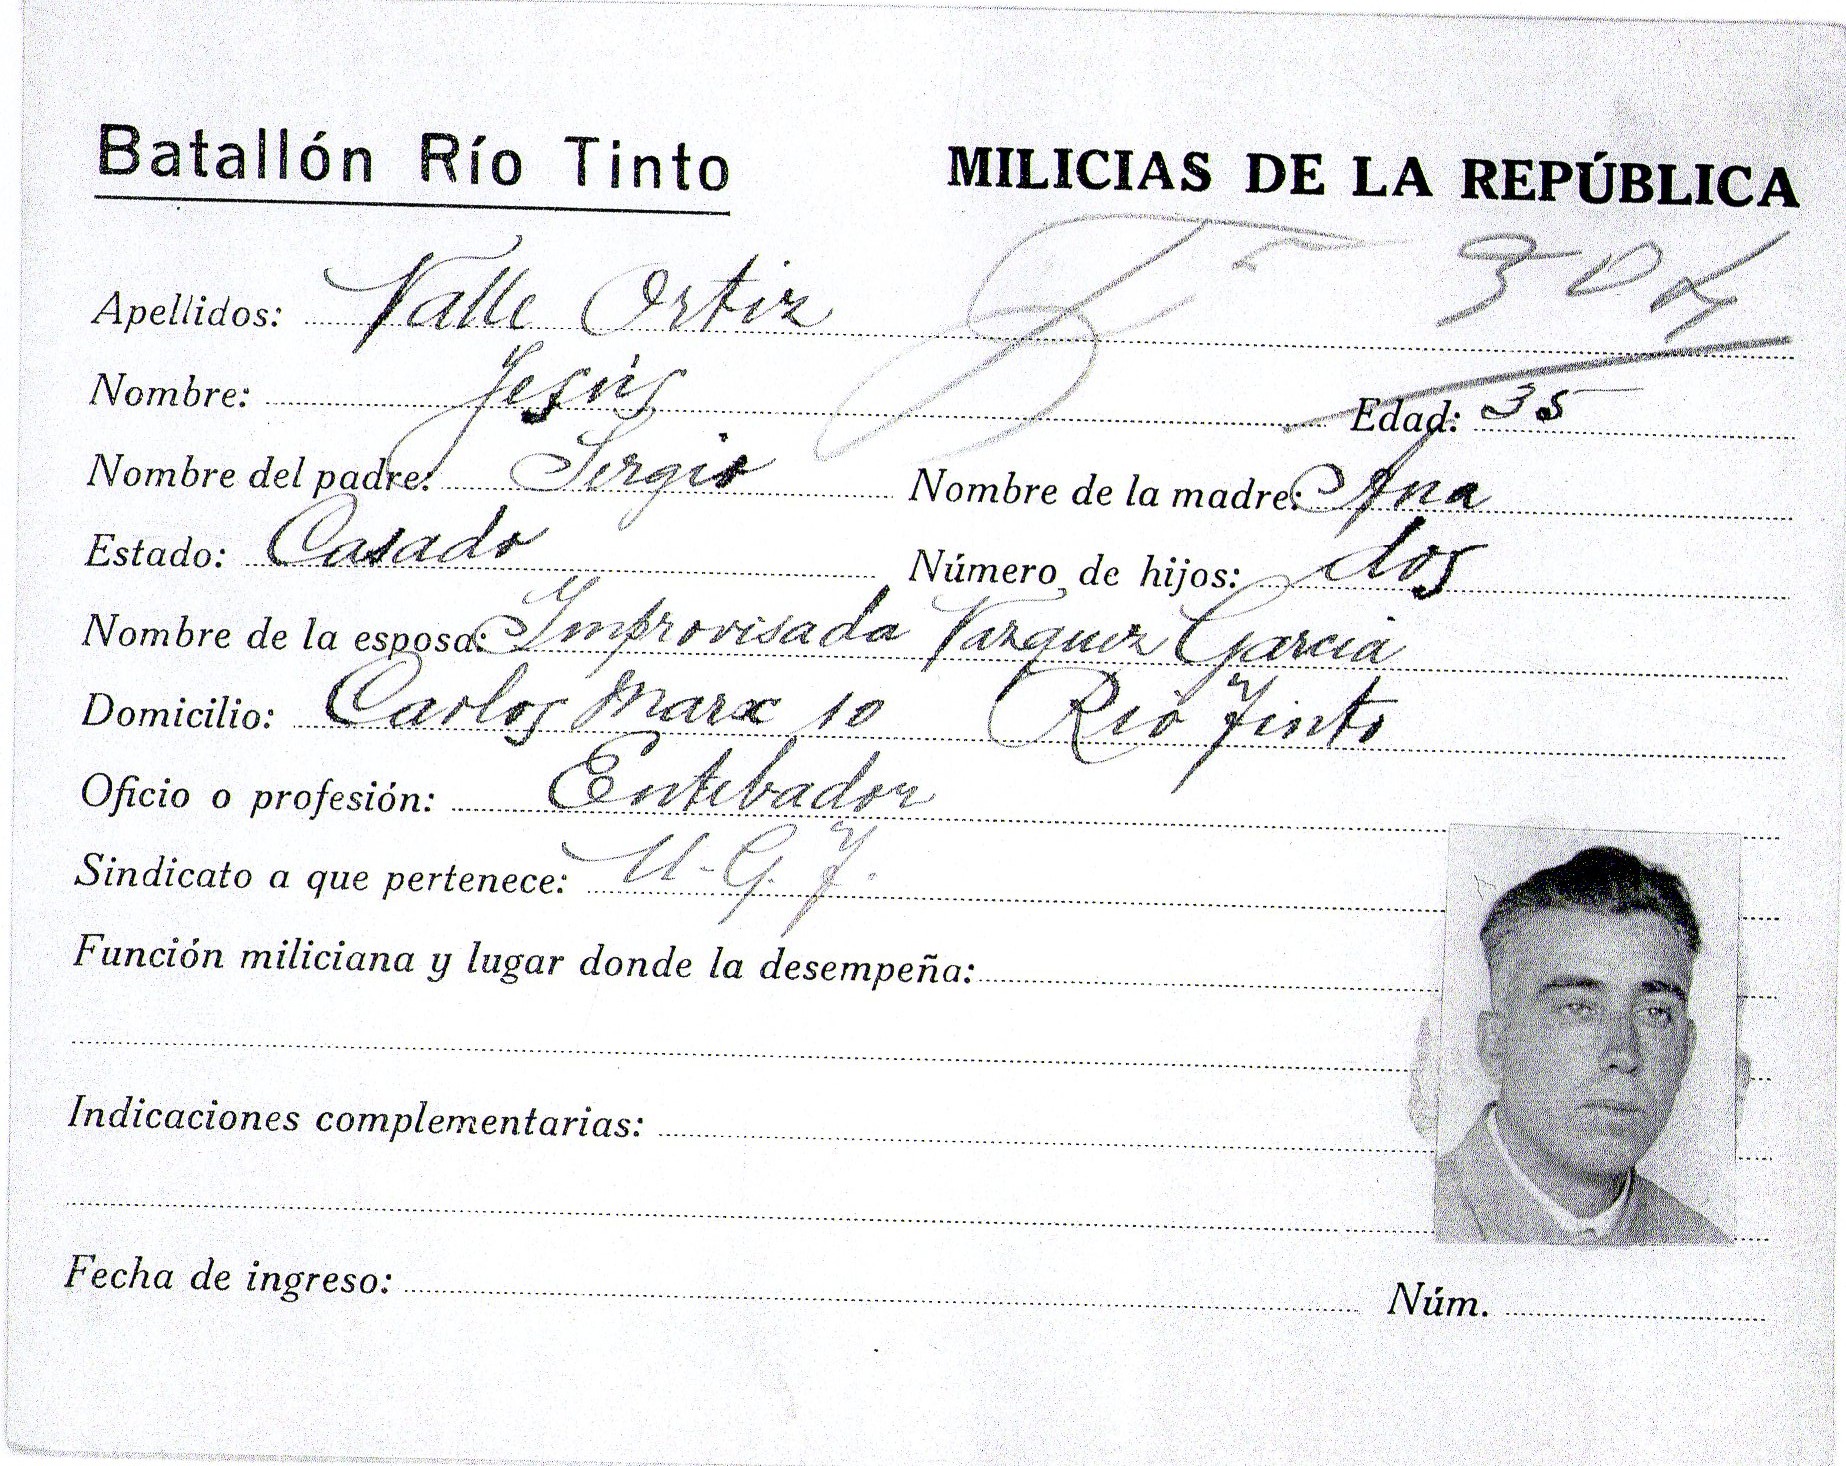 Batallón Río Tinto MILICIAS DE LA REPÚBLICA
Apellidos: Valle Ortiz
Nombre: Jesús Edad: 35
Nombre del padre: Sergio Nombre de la madre: Ana
Estado: Casado Número de hijos: dos
Nombre de la esposa: Improvisada Vazquez Garcia
Domicilio: Carlos Marx 10 Rio Tinto
Oficio o profesión: Entebador
Sindicato a que pertenece: U-G.T.
Función miliciana y lugar donde la desempeña:
Indicaciones complementarias:
Fecha de ingreso: Núm.